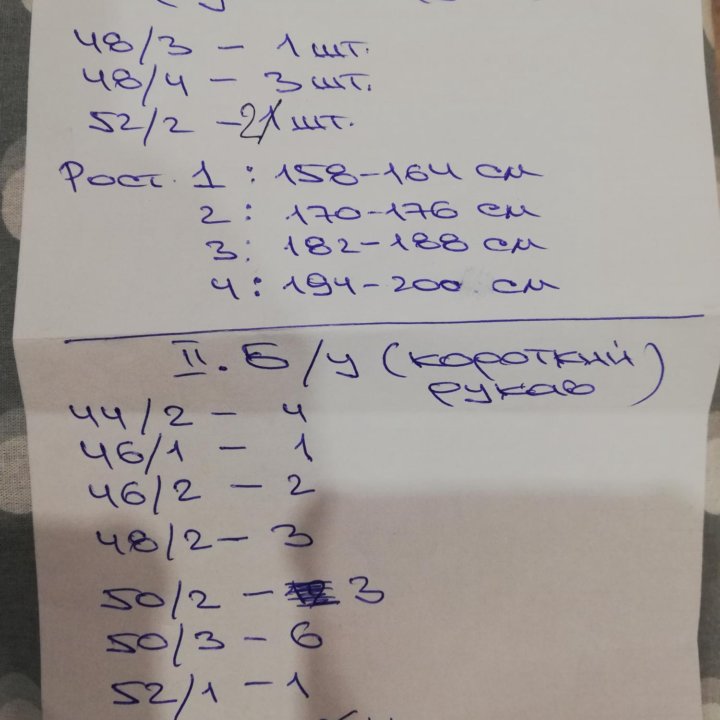 48/3 – 1 шт.
48/4 – 3 шт.
52/2 – 2 шт.
Рост 1 : 158–164 см
2 : 170–176 см
3 : 182–188 см
4 : 194–200 см
II. Б/у (короткий
рукав)
44/2 – 4
46/1 – 1
46/2 – 2
48/2 – 3
50/2 – 3
50/3 – 6
52/1 – 1